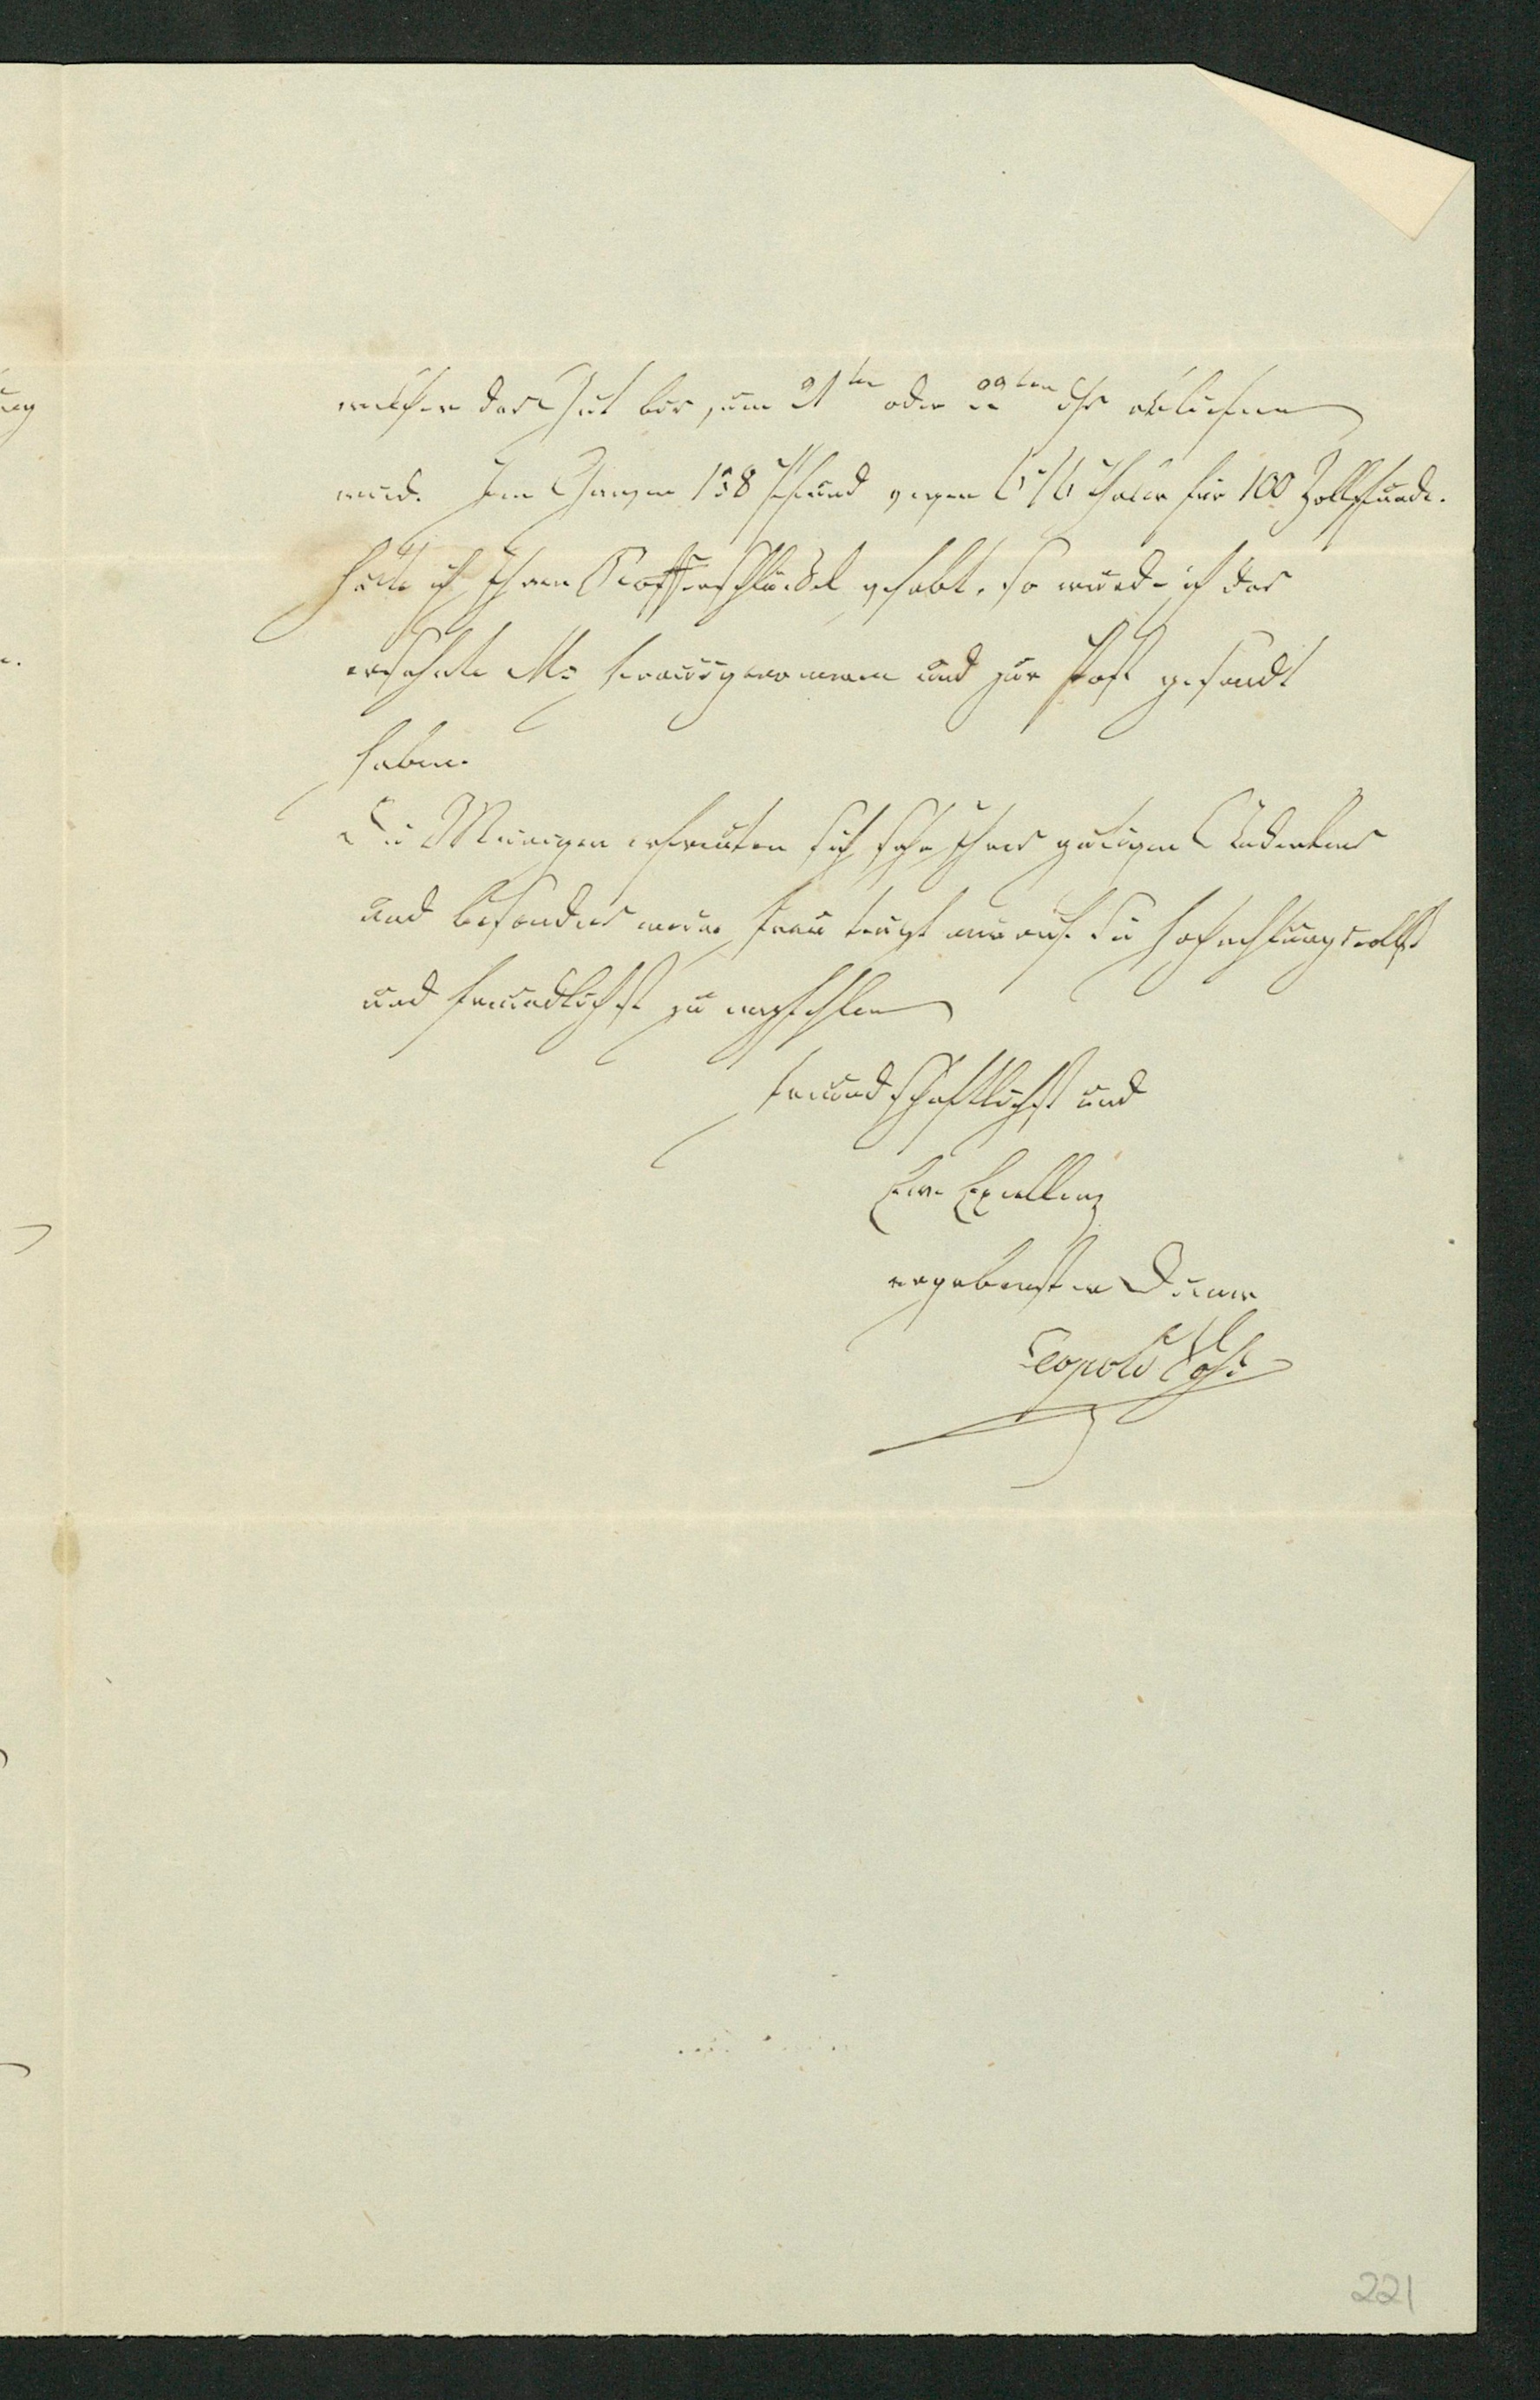 welcher das Gut bis zum 21ten oder 22ten abliefern
wird. Im Ganzen 138 Pfund gegen 6 5/6 Thaler für 100 Zollpfunde.
Hätte ich Ihren Kofferschlüssel gehabt, so würde ich das
ersehnte Ms herausgenommen und zur Post gesandt
haben.
Die Meinigen erfreuten sich sehr Ihres gütigen Andenkens
und besonders meine Frau trägt mir auf Sie hochachtungsvollst
und freundlichst zu empfehlen
freundschaftlichst und
Eure Excellenz
ergebenster Diener
Leopold Voß
221